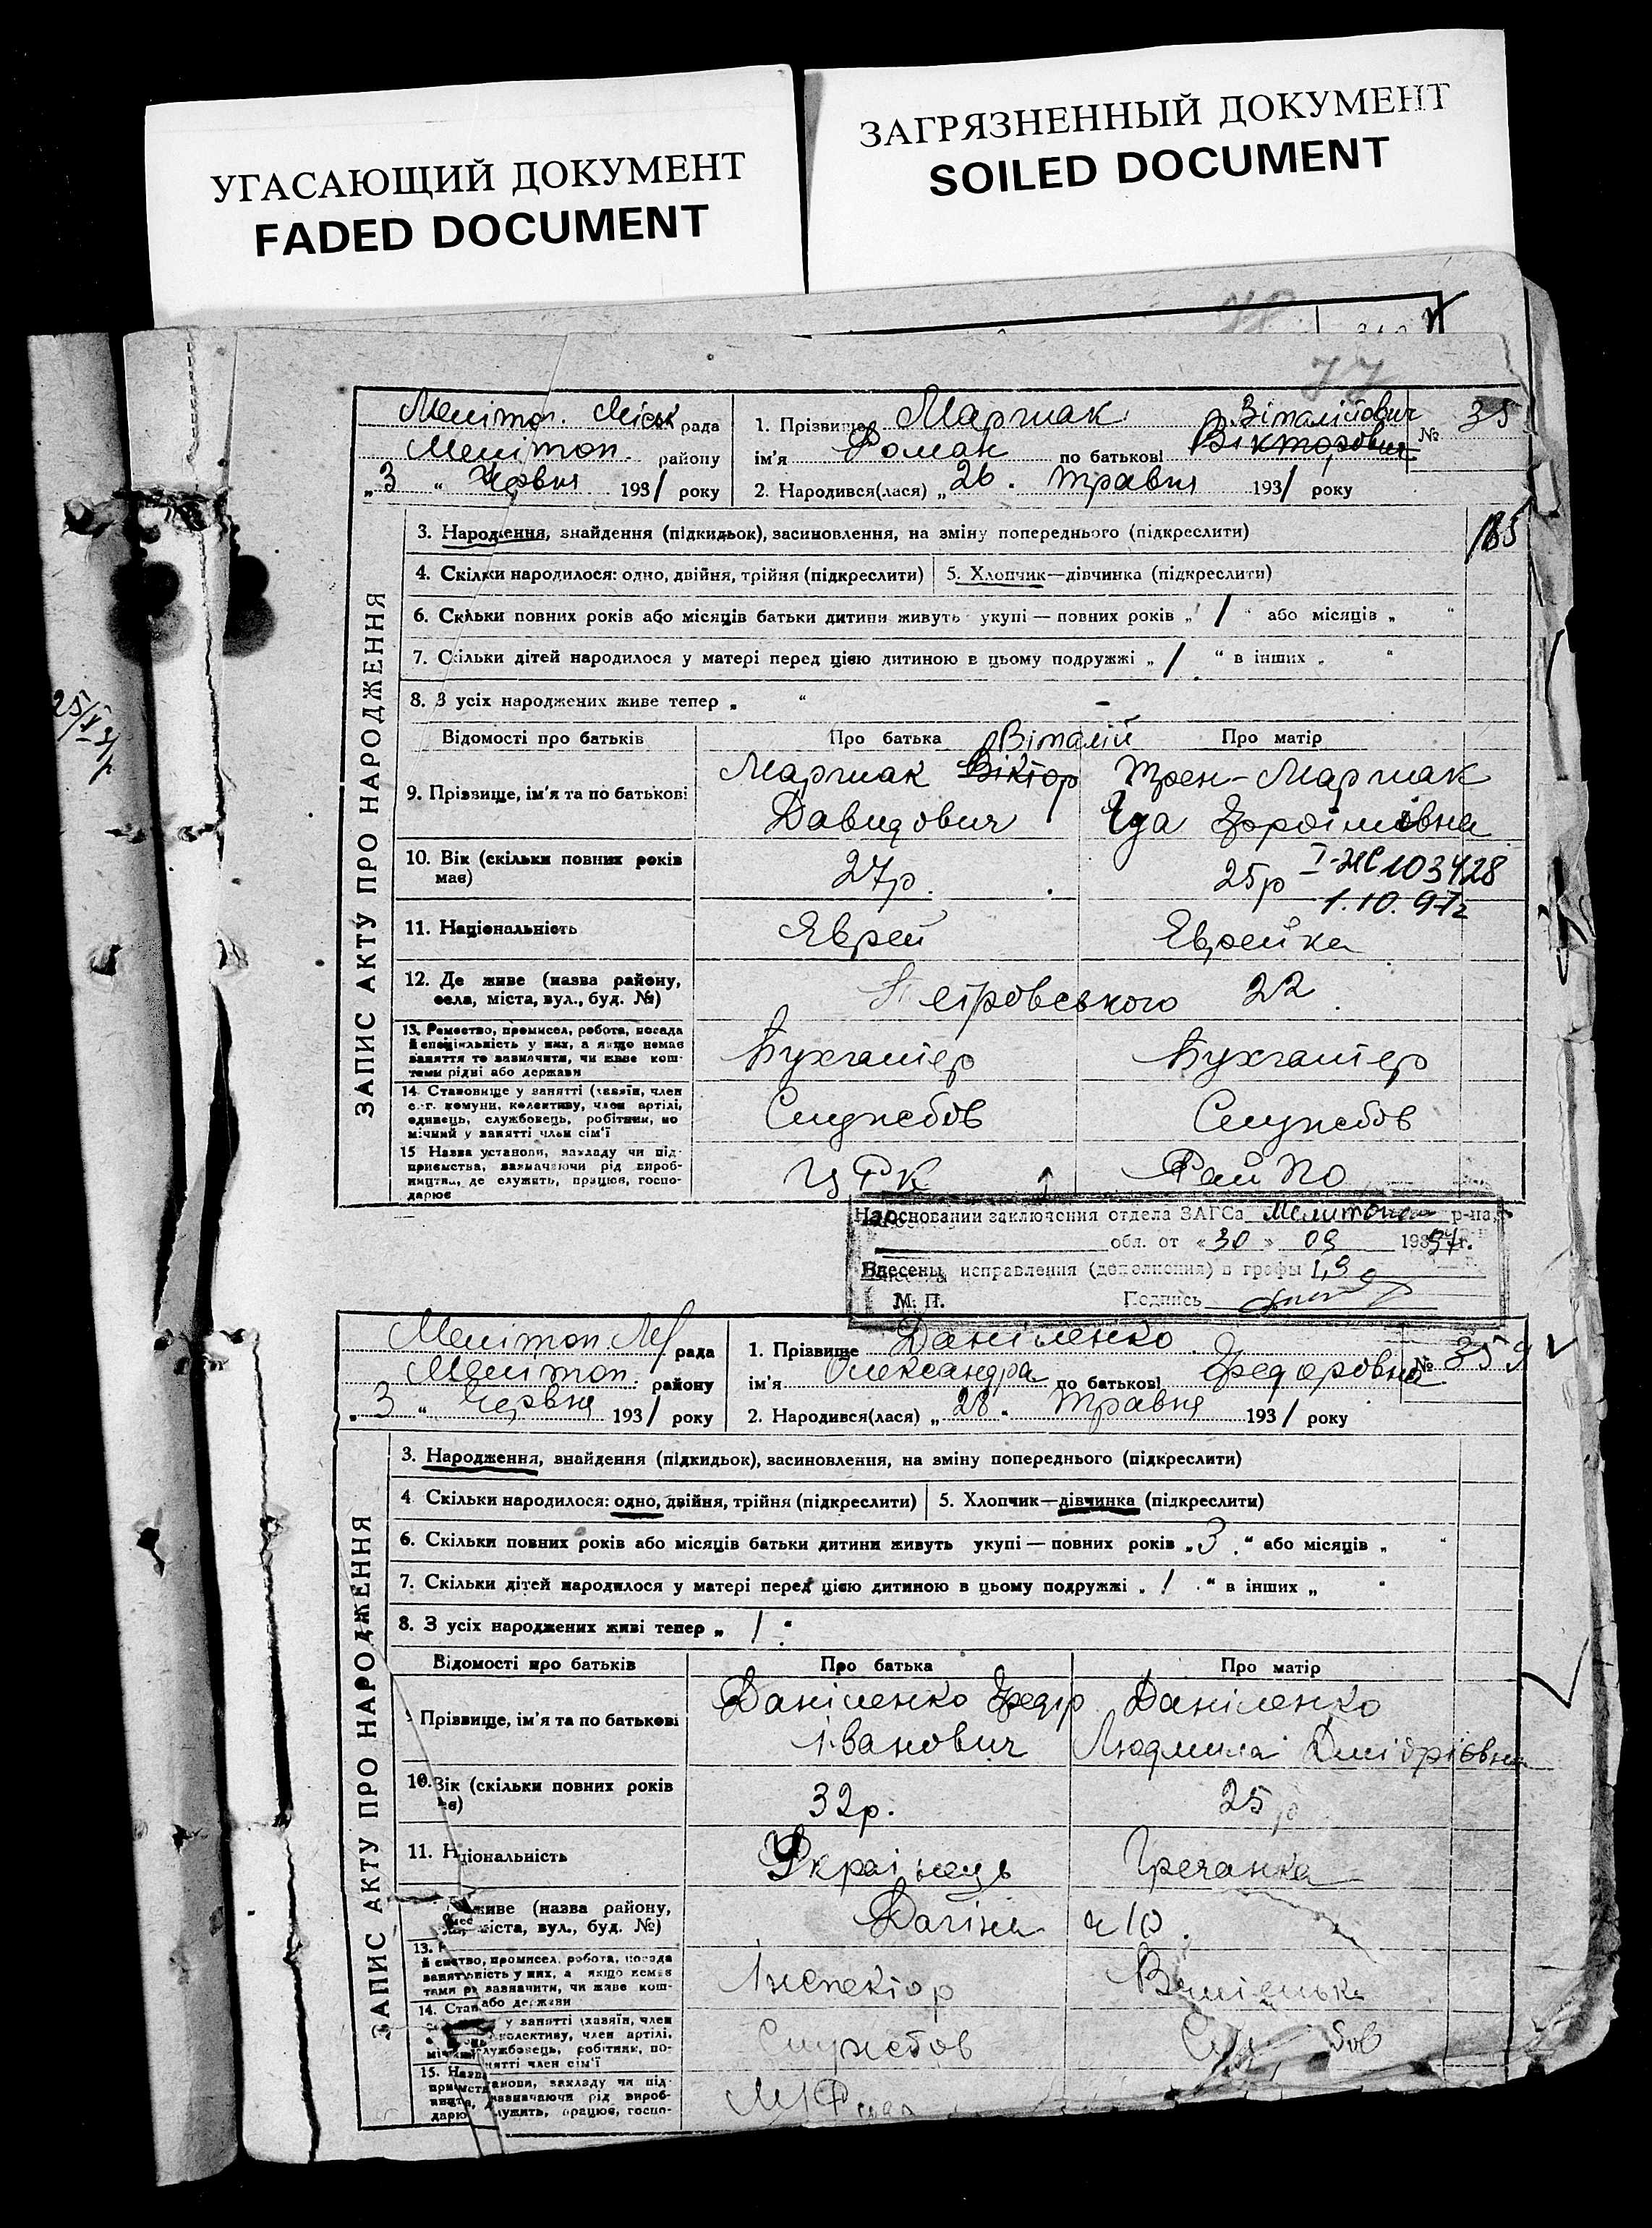 УГАСАЮЩИЙ ДОКУМЕНТ
FADED DOCUMENT
ЗАГРЯЗНЕННЫЙ ДОКУМЕНТ
SOILED DOCUMENT
77
ЗАПИС АКТУ ПРО НАРОДЖЕННЯ
Меліто. Міськ рада
Мелітоп. району
„3“ Червня 1931 року
1. Прізвище Маршак Віталійович
ім'я Роман по батькові Вікторович
№ 35
2. Народився(лася) „26. травня 1931 року
3. Народження, знайдення (підкидьок), засиновлення, на зміну попереднього (підкреслити)
185
4. Скільки народилося: одно, двійня, трійня (підкреслити)
5. Хлопчик—дівчинка (підкреслити)
6. Скільки повних років або місяців батьки дитини живуть укупі — повних років „1“ або місяців „ “
7. Скільки дітей народилося у матері перед цією дитиною в цьому подружжі „1“ в інших „ “
8. З усіх народжених живе тепер „ “ –
Відомості про батьків
Про батька
Про матір
Віталій
9. Прізвище, ім'я та по батькові
Маршак Віктор
Давидович
Трен-Маршак
10. Вік (скільки повних років має)
27р.
25р
І-ЖС 103428
1.10.97г
11. Національність
Яврей
Еврейка
12. Де живе (назва району, села, міста, вул., буд. №)
Петровського 22
13. Ремество, промисел, робота, посада й спеціяльність у них, а якщо немає заняття то зазначити, чи живе коштами рідні або держави
Бухгалтер
Бухгалтер
14. Становище у занятті (хазяїн, член с.-г. комуни, колективу, член артілі, одинець, службовець, робітник, помічний у занятті член сім'ї
Службов
Службов
15 Назва установи, закладу чи підприємства, зазначаючи рід виробництва, де служить, працює, господарює
ЦРК
РайПО
На основании заключения отдела ЗАГСа Мелитопол р-на,
обл. от «30» 09 1997г.
Внесены исправления (дополнения) в графы 1,9
М. П. Подпись
ЗАПИС АКТУ ПРО НАРОДЖЕННЯ
Мелітоп. М/ рада
Мелітоп. району
„3“ Червня 1931 року
1. Прізвище Даніленко
ім'я Олександра по батькові Федоровна
№ 359
2. Народився(лася) „28“ травня 1931 року
3. Народження, знайдення (підкидьок), засиновлення, на зміну попереднього (підкреслити)
4 Скільки народилося: одно, двійня, трійня (підкреслити)
5. Хлопчик—дівчинка (підкреслити)
6. Скільки повних років або місяців батьки дитини живуть укупі — повних років „3.“ або місяців „ “
7. Скільки дітей народилося у матері перед цією дитиною в цьому подружжі „1“ в інших „ “
8. З усіх народжених живі тепер „1“
Відомості про батьків
Про батька
Про матір
Прізвище, ім'я та по батькові
Даніленко Федір
Іванович
Даніленко
Людмила Дмідрієвна
10. Вік (скільки повних років
32р.
25р
11. Національність
Українець
Гречанка
живе (назва району, міста, вул., буд. №)
ч 10.
13.
промисел, робота, посада
у них, а якщо немає
зазначити, чи живе кош-
або держави
Інспектор
14. Стан
у занятті (хазяїн, член
колективу, член артілі,
службовець, робітник, по-
занятті член сім'ї
Службов
15. Назва
установи, закладу чи під-
зазначаючи рід вироб-
служить, працює, госпо-